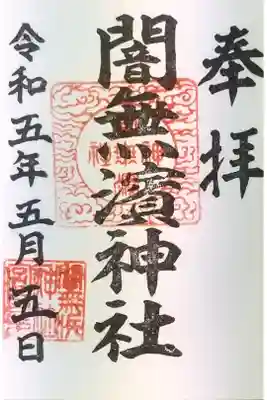 奉拝
闇無濱神社
令和五年五月五日